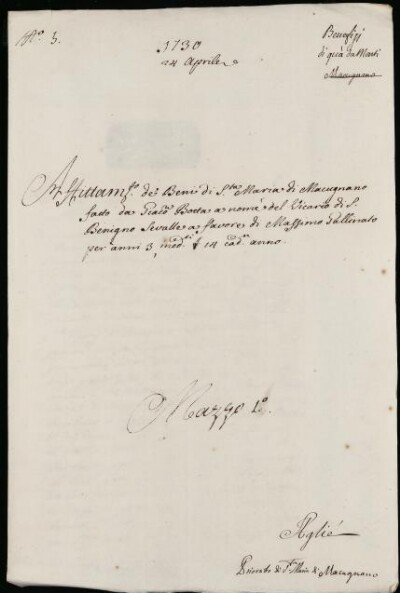 N.° 5.
1730
24 Aprile
Benefizj
di quà da Monti
Macugnano
Affittam.to de Beni di S.ta Maria di Macugnano
fatto da Giac.o Botta a nome del Vicario di S.
Benigno a favore di Massimo Gallinato
per anni 3, med.ti £ 14 cad.n anno.
Mazzo 1.°
Agliè
Priorato di S. Maria di Macugnano